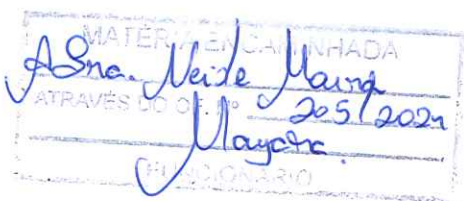 MATÉRIA ENCAMINHADA
A Sra. Neide
ATRAVÉS DO OF. Nº 205/2021
Mayara
FUNCIONÁRIO